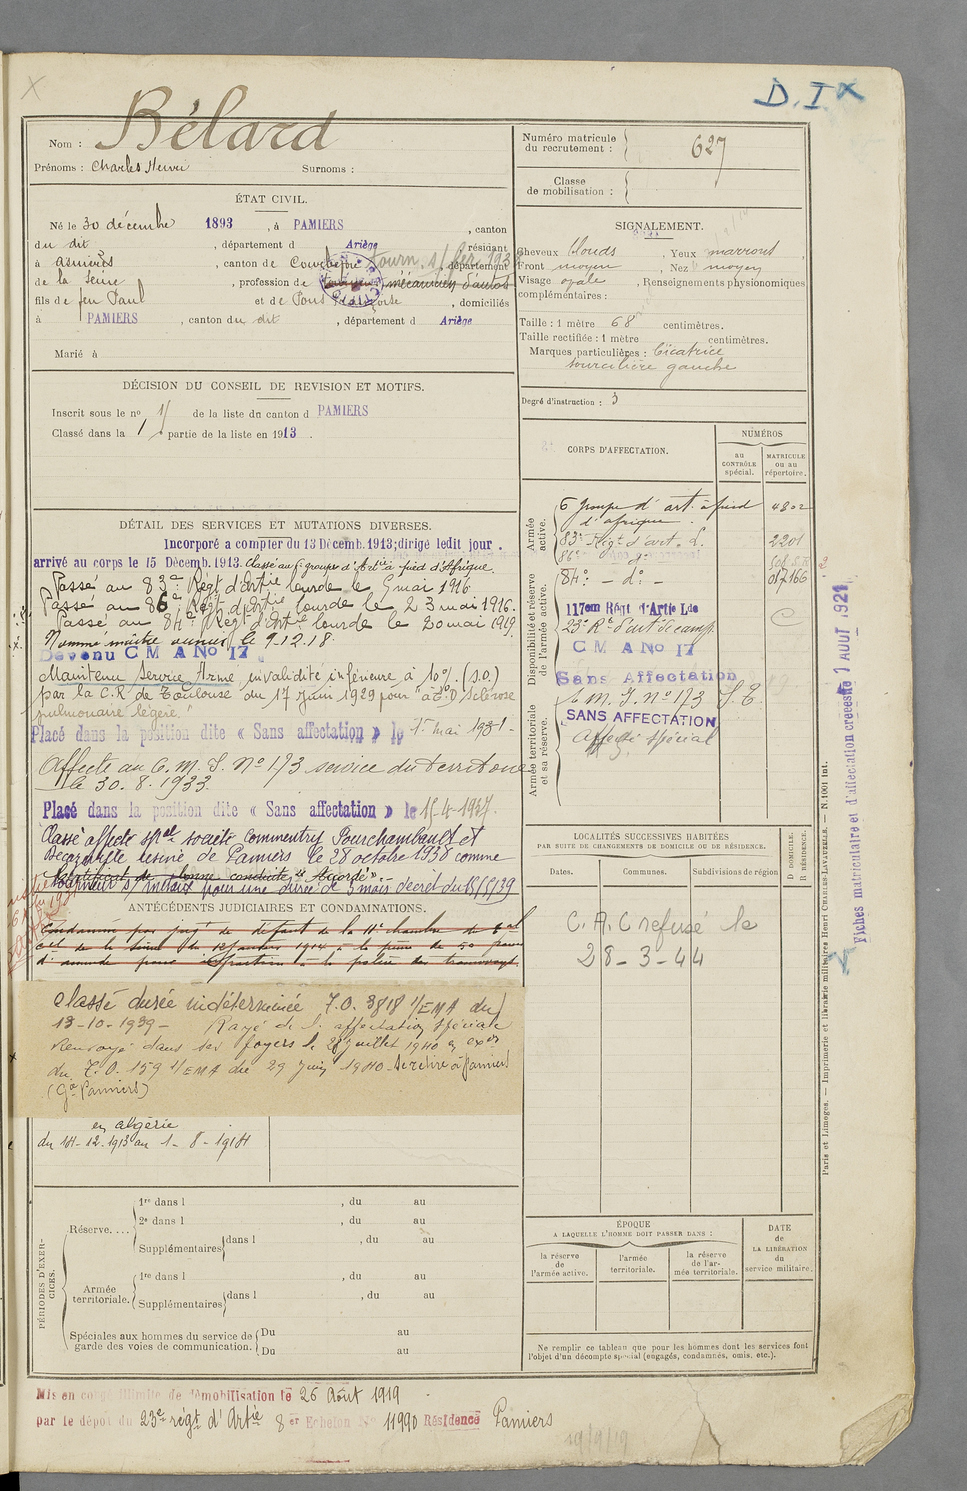 D. I x
Nom : Bélard
Prénoms : Charles Henri Surnoms :
Numéro matricule
du recrutement : 627
Classe
de mobilisation :
ÉTAT CIVIL.
Né le 30 décembre 1893, à PAMIERS, canton
du dit, département d Ariège, résidant
à asnières, canton de Courbevoie, département
de la Seine, profession de mécanicien d'autos
fils de feu Paul et de Pons, domiciliés
à PAMIERS, canton du dit, département d Ariège
Marié à
SIGNALEMENT.
Cheveux blonds, Yeux marrons
Front moyen, Nez moyen
Visage ovale, Renseignements physionomiques
complémentaires :
Taille : 1 mètre 68 centimètres.
Taille rectifiée : 1 mètre centimètres.
Marques particulières : Cicatrice
sourcilière gauche
Degré d'instruction : 3
DÉCISION DU CONSEIL DE REVISION ET MOTIFS.
Inscrit sous le nº 11 de la liste du canton d PAMIERS
Classé dans la 1 partie de la liste en 1913.
CORPS D'AFFECTATION.
NUMÉROS
au
CONTRÔLE
spécial.
MATRICULE
ou au
répertoire.
Armée
active.
6 groupe d'art. à pied 4802
d'afrique.
83e Régt d'art. L. 2201
84e - dº - 017166
Disponibilité et réserve
de l'armée active.
117em Régt d'Artie Lde
23e Rt d'art de camp.
C M A No 17
Sans Affectation
Armée territoriale
et sa réserve.
C. M. I. Nº 173 S. T.
SANS AFFECTATION
Affecté spécial
DÉTAIL DES SERVICES ET MUTATIONS DIVERSES.
Incorporé a compter du 13 Décemb. 1913; dirigé ledit jour.
arrivé au corps le 15 Décemb. 1913. Classé au 6e groupe d'Artie à pied d'Afrique.
Passé au 83e Régt d'Artie lourde le 9 mai 1916
Passé au 86e Régt d'Artie lourde le 23 mai 1916.
Passé au 84e Régt d'Artie lourde le 20 mai 1919.
Nommé maître ouvrier le 9.12.18.
Devenu C M A No 17
Maintenu Service Armé, invalidité inférieure à 10% (S.O.)
par la C.R de Toulouse du 17 Juin 1929 pour "Sclérose
pulmonaire légère."
Placé dans la position dite « Sans affectation » le 1er mai 1931-
Affecté au C. M. I. Nº 173 service du territoire
le 30. 8. 1933.
Placé dans la position dite « Sans affectation » le 15-4-1937.
Classé affecté spécial société Commentry Fourchambault et
Decazeville usine de Pamiers le 28 octobre 1938 comme
Certificat de bonne conduite "Accordé".-
tourneur s/ métaux pour une durée de 3 mois décret du
ANTÉCÉDENTS JUDICIAIRES ET CONDAMNATIONS.
Condamné par jugt de défaut de la 11e chambre du tribal
de la Seine du janvier 1914 à la peine de 50 francs
d'amende pour infraction à la police des tramways.
classé durée indéterminée T.O. 3818 1/EMA du
13-10-1939- Rayé de l'affectation spéciale
Renvoyé dans ses foyers le 28 juillet 1940 en exon
du T.O. 159 1/EMA du 29 Juin 1940 se retire à Pamiers
(Gie Pamiers)
en algérie
du 14-12-1913 au 1-8-1914
LOCALITÉS SUCCESSIVES HABITÉES
PAR SUITE DE CHANGEMENTS DE DOMICILE OU DE RÉSIDENCE.
D DOMICILE.
R RÉSIDENCE.
Dates. Communes. Subdivisions de région
C. A. C refusé le
28-3-44
ÉPOQUE
A LAQUELLE L'HOMME DOIT PASSER DANS :
la réserve
de
l'armée active.
l'armée
territoriale.
la réserve
de l'ar-
mée territoriale.
DATE
de
LA LIBÉRATION
du
service militaire.
Ne remplir ce tableau que pour les hommes dont les services font
l'objet d'un décompte spécial (engagés, condamnés, omis, etc.).
PÉRIODES D'EXER-
CICES.
Réserve....
1re dans l , du au
2e dans l , du au
Supplémentaires dans l , du au
Armée
territoriale.
1re dans l , du au
Supplémentaires dans l , du au
Spéciales aux hommes du service de
garde des voies de communication.
Du au
Du au
Mis en congé illimité de démobilisation le 26 Août 1919
par le dépôt du 23e régt d'Artie 8 er Echelon No 11990 Résidence Pamiers
19/9/19
Paris et Limoges. — Imprimerie et librairie militaires Henri CHARLES-LAVAUZELLE. — N. 1001 int.
Fiches matriculaire et d'affectation créées le 1 AOUT 1921